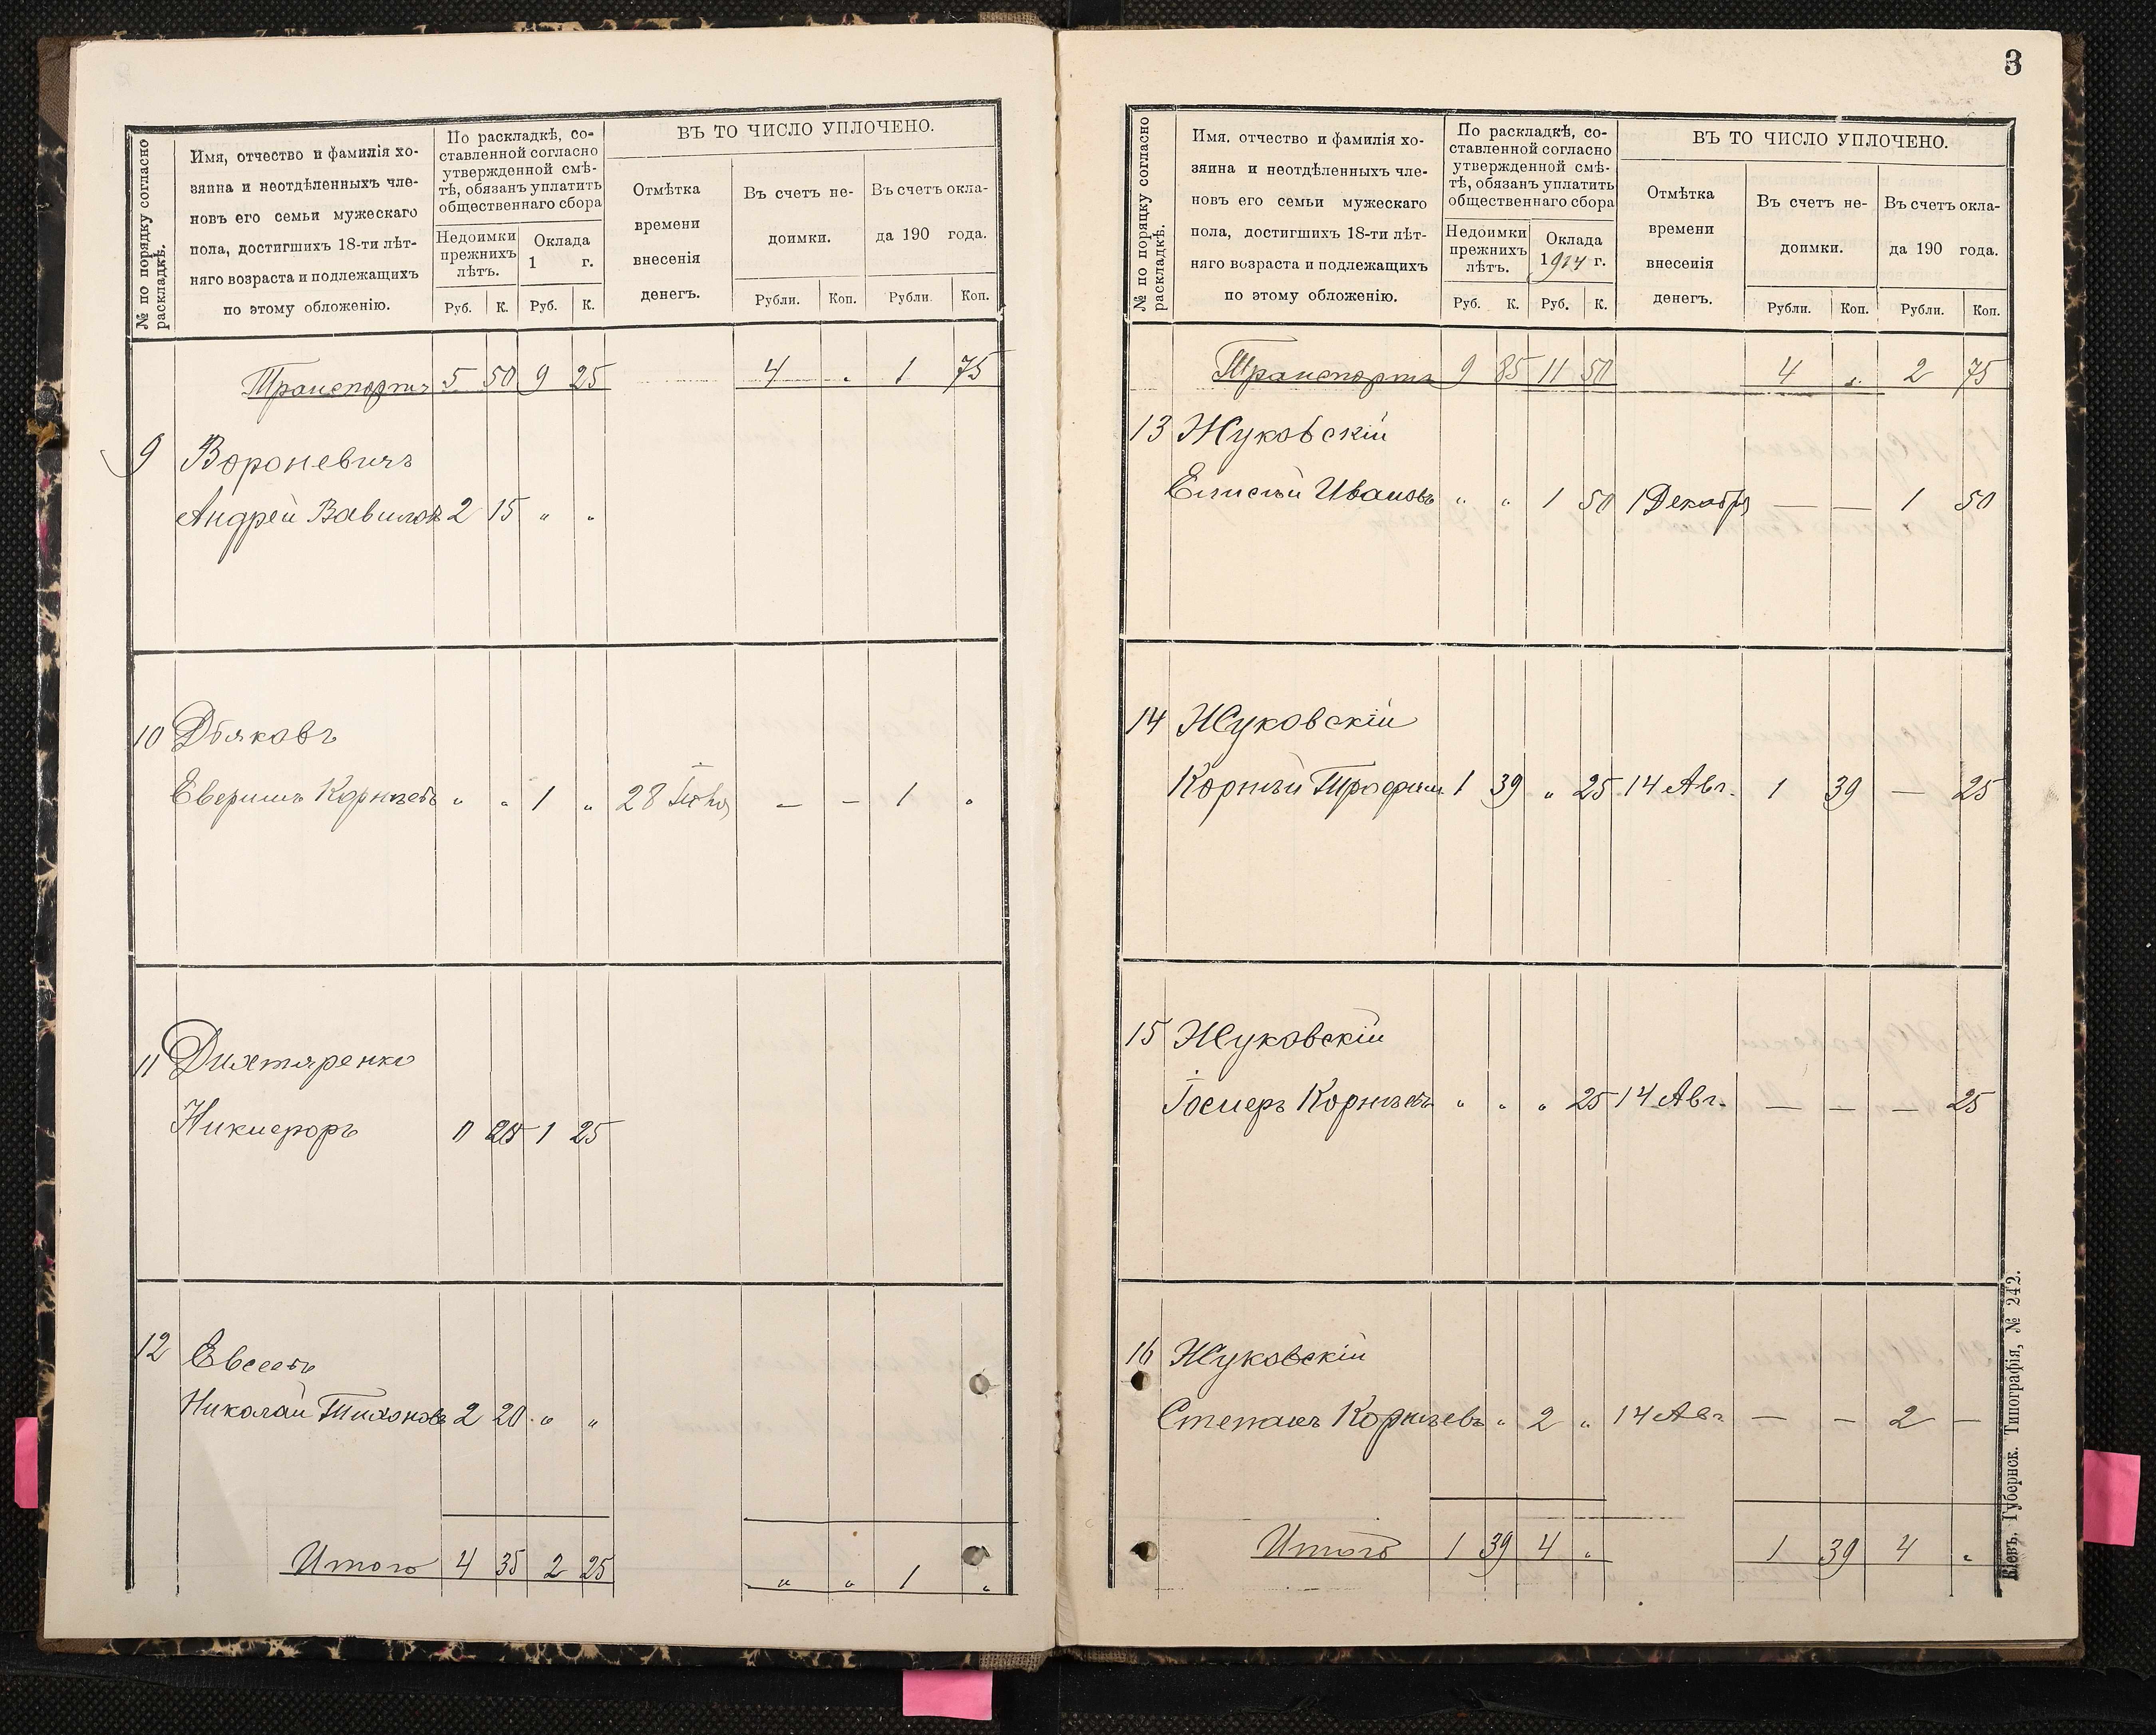 № по порядку согласно раскладкѣ.
Имя, отчество и фамилія хо-
зяина и неотдѣленныхъ чле-
новъ его семьи мужескаго
пола, достигшихъ 18-ти лѣт-
няго возраста и подлежащихъ
по этому обложенію.
По раскладкѣ, со-
ставленной согласно
утвержденной смѣ-
тѣ, обязанъ уплатить
общественнаго сбора
Недоимки
прежнихъ
лѣтъ.
Оклада
1 г.
Руб. К. Руб. К.
ВЪ ТО ЧИСЛО УПЛОЧЕНО.
Отмѣтка
времени
внесенія
денегъ.
Въ счетъ не-
доимки.
Въ счетъ окла-
да 190 года.
Рубли. Коп. Рубли. Коп.
Транспортъ 5 50 9 25 4 „ 1 75
9 Вороневичъ
Андрей Вавилов 2 15 „ „
10 Дьяковъ
Корнѣевъ „ „ 1 „ 28 — — 1 „
11 Дихтяренко
Никифоръ 1 25
12 Евсеевъ
Николай Тихоновъ 2 20 „ „
Итого 4 35 2 25 „ „ 1 „
3
№ по порядку согласно раскладкѣ.
Имя, отчество и фамилія хо-
зяина и неотдѣленныхъ чле-
новъ его семьи мужескаго
пола, достигшихъ 18-ти лѣт-
няго возраста и подлежащихъ
по этому обложенію.
По раскладкѣ, со-
ставленной согласно
утвержденной смѣ-
тѣ, обязанъ уплатить
общественнаго сбора
Недоимки
прежнихъ
лѣтъ.
Оклада
1914 г.
Руб. К. Руб. К.
ВЪ ТО ЧИСЛО УПЛОЧЕНО.
Отмѣтка
времени
внесенія
денегъ.
Въ счетъ не-
доимки.
Въ счетъ окла-
да 190 года.
Рубли. Коп. Рубли. Коп.
Транспортъ 9 85 11 50 4 „ 2 75
13 Жуковскій
Елисѣй Ивановъ „ „ 1 50 1 Декабря — — 1 50
14 Жуковскій
Корнѣй Трофим 1 39 „ 25 14 Авг. 1 39 — 25
15 Жуковскій
Іосифъ Корнѣевъ „ „ „ 25 14 Авг. — — — 25
16 Жуковскій
Степанъ Корнѣевъ „ 2 „ 14 Авг — — 2 —
Итого 1 39 4 „ 1 39 4 „
Кіевъ, Губернск. Типографія, № 242.